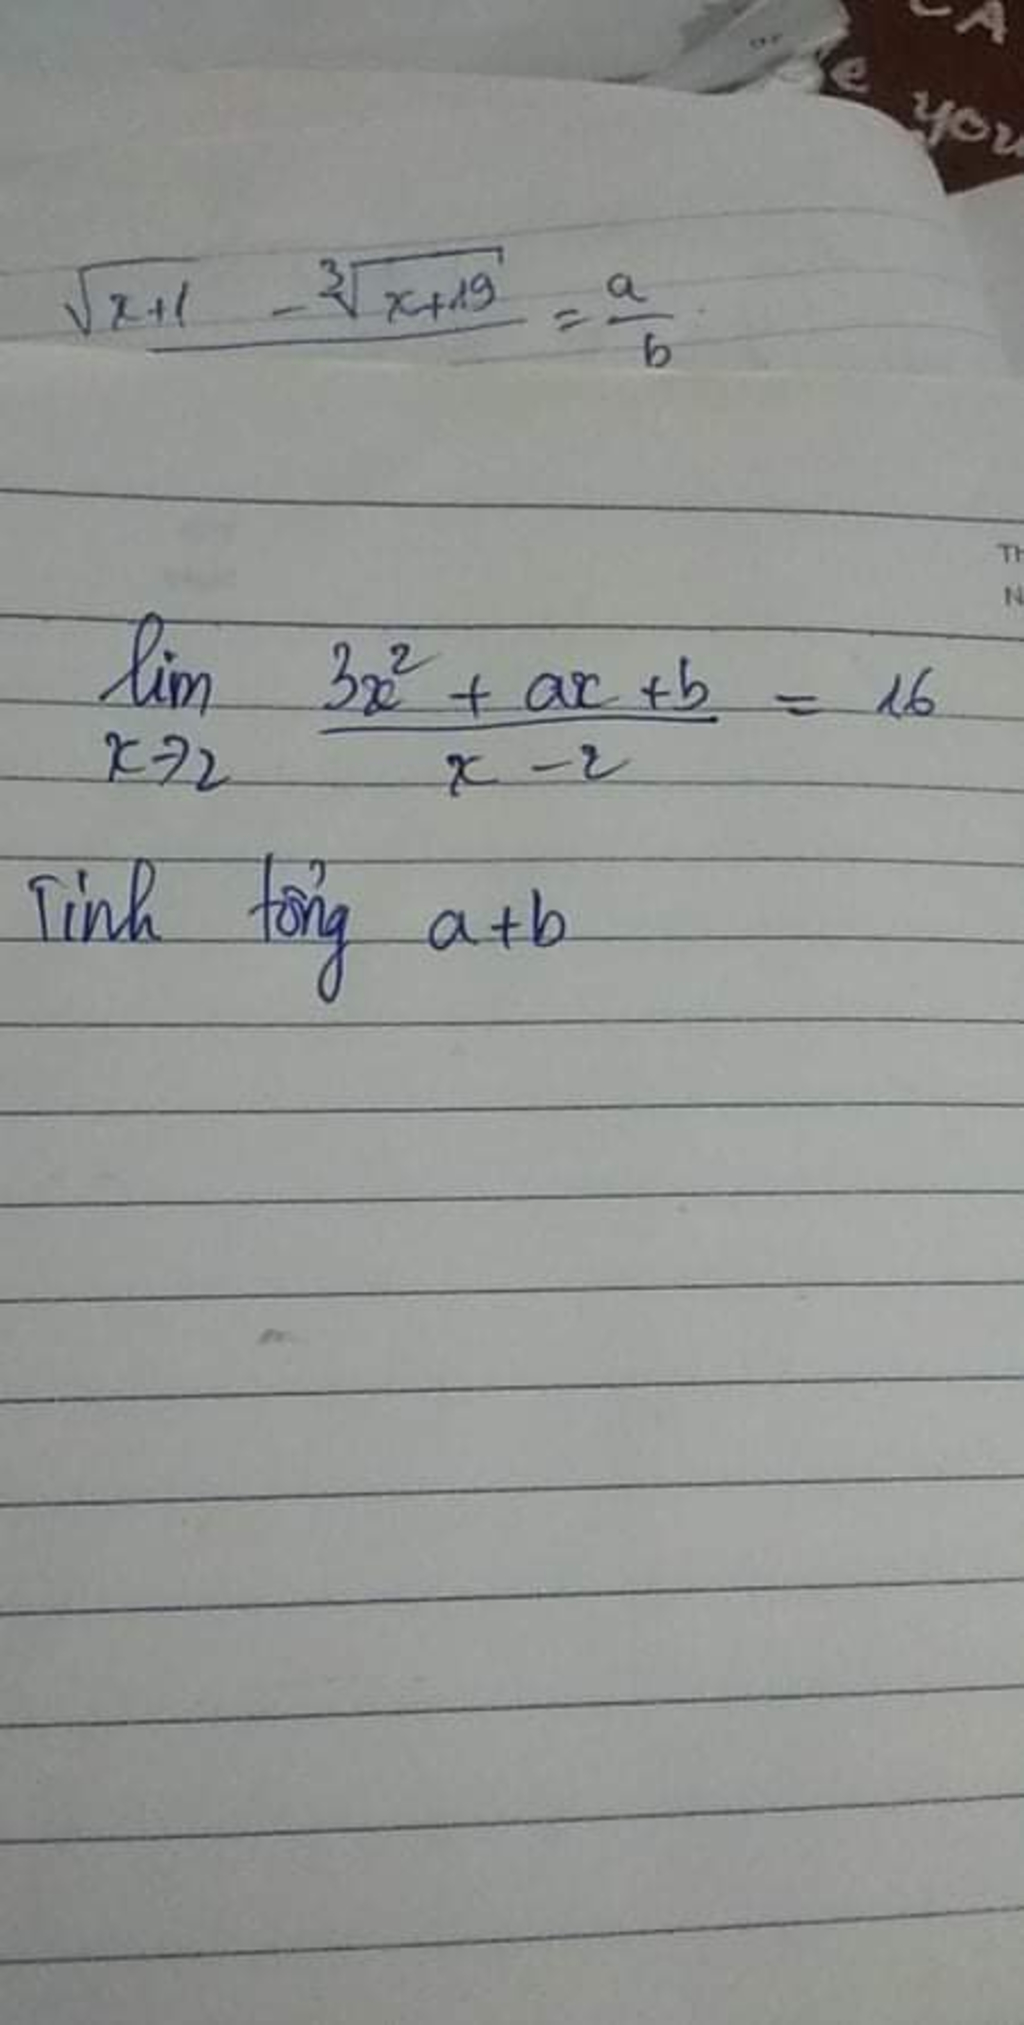 CA
e you
√x+1 - ∛x+19 = a/b
TH
N
lim x→2 (3x² + ax + b)/(x - 2) = 16
Tính tổng a+b